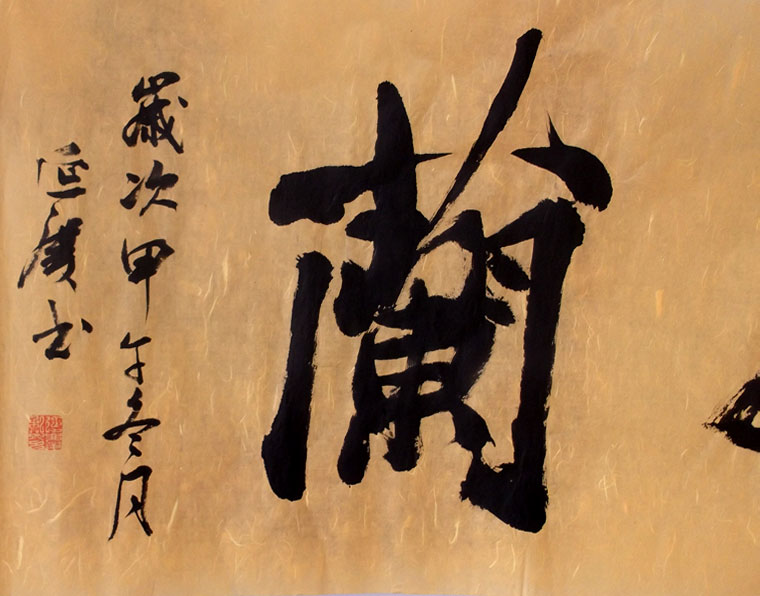 蘭
歲次甲午冬月
延廣書